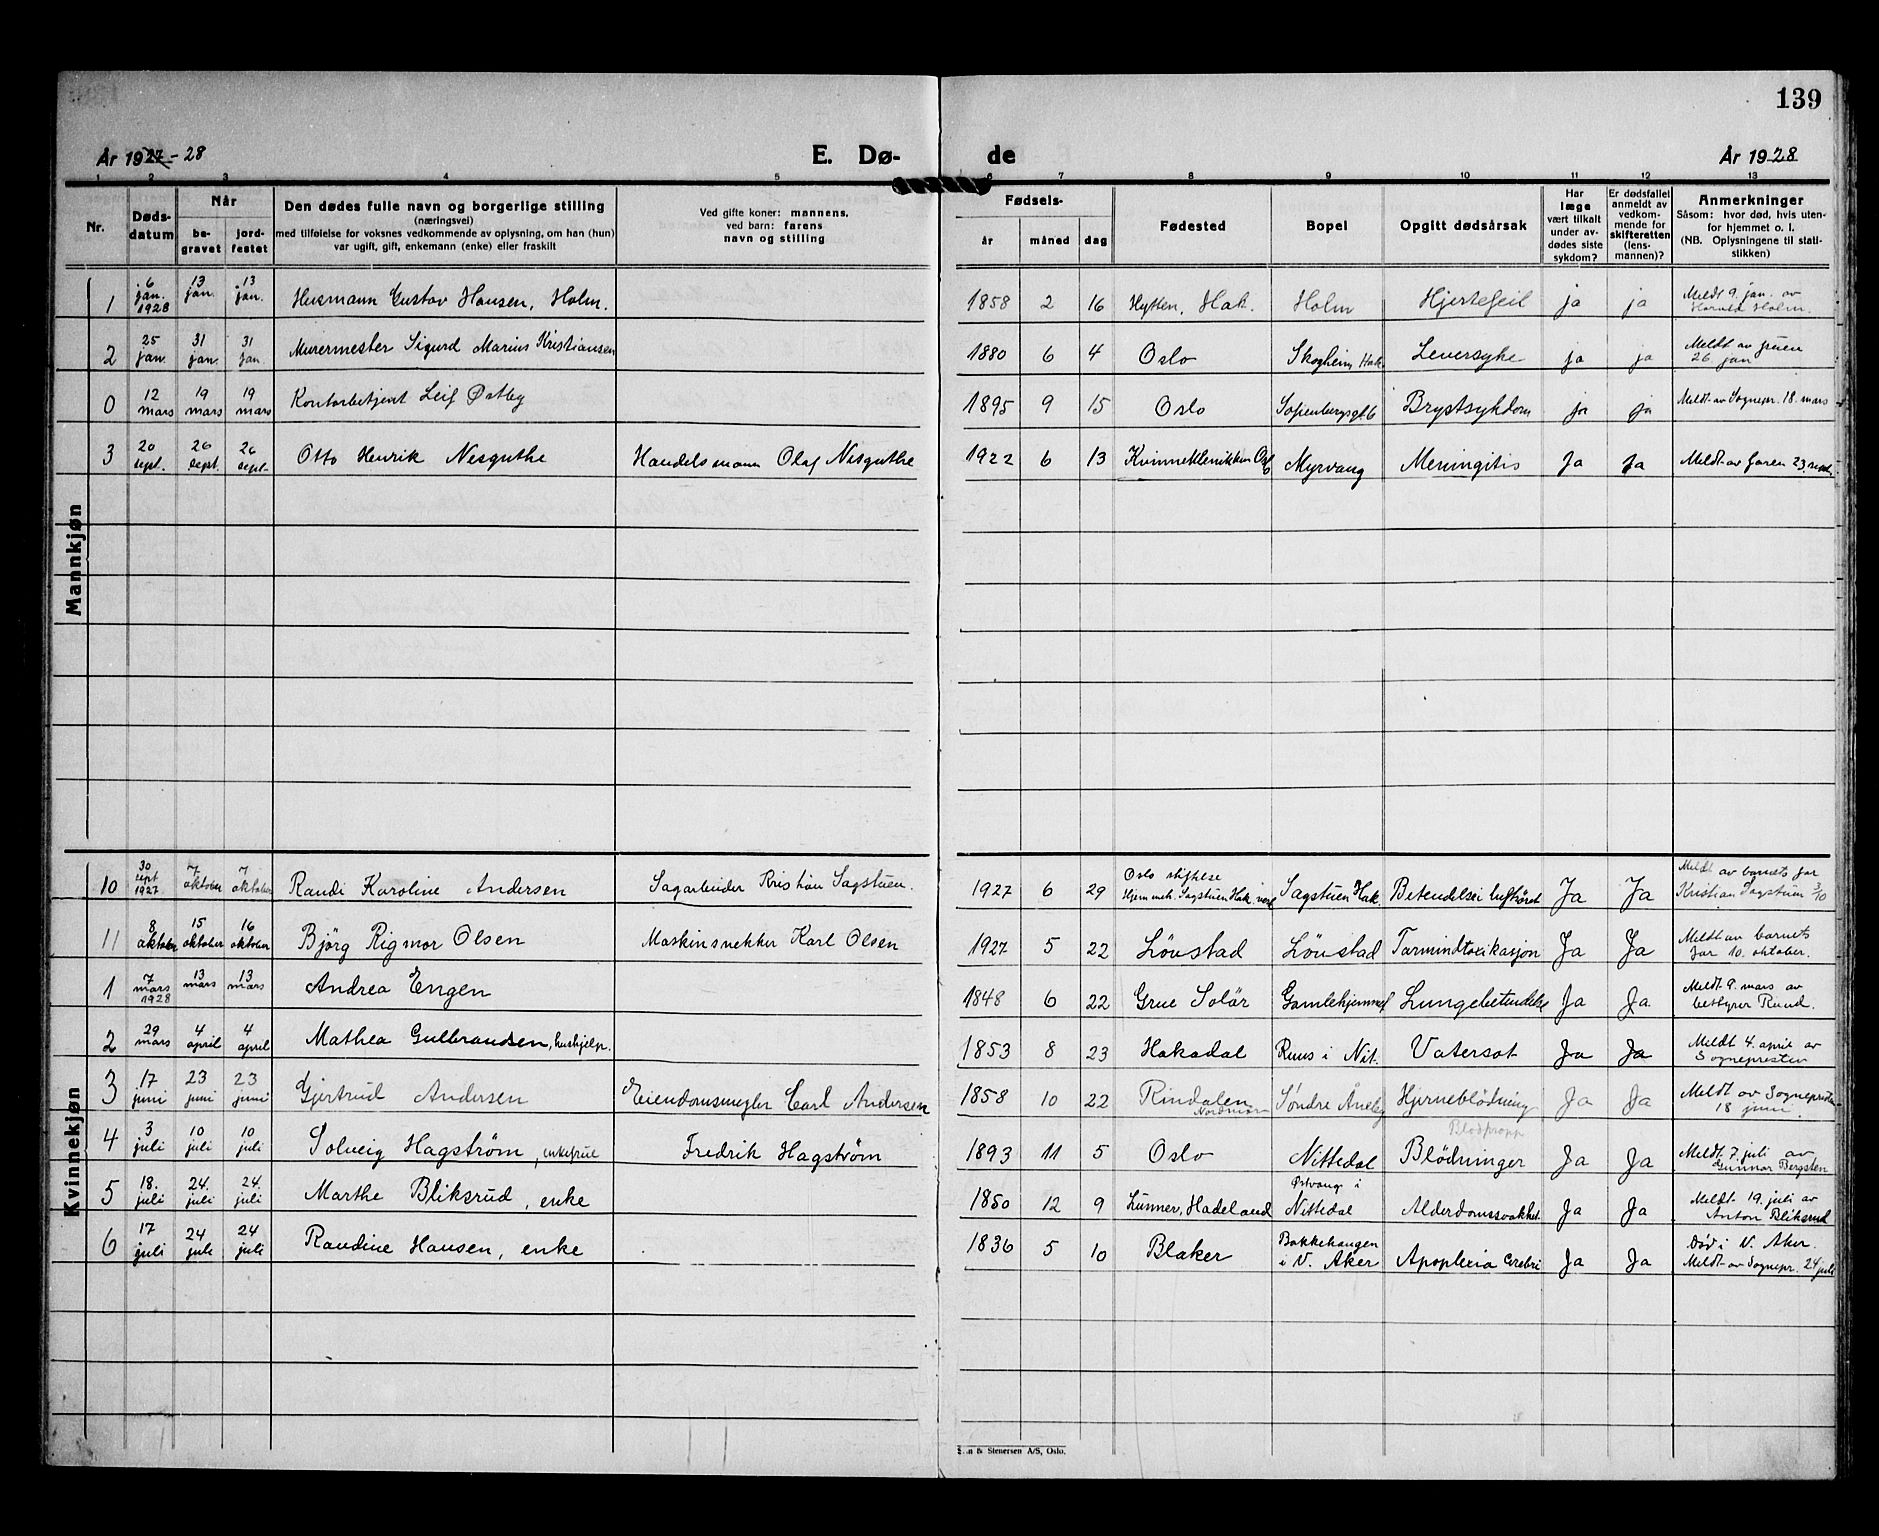 139
År 1927-28 E. Dø- de År 1928
1 2 3 4 5 6 7 8 9 10 11 12 13
Nr. Døds-datum Når be-gravet jord-festet Den dødes fulle navn og borgerlige stilling (næringsvei) med tilføielse for voksnes vedkommende av oplysning, om han (hun) var ugift, gift, enkemann (enke) eller fraskilt Ved gifte koner: mannens, ved barn: farens navn og stilling Fødsels- år måned dag Fødested Bopel Opgitt dødsårsak Har læge vært tilkalt under av-dødes siste sykdom? Er dødsfallet anmeldt av vedkom-mende for skifteretten (lens-mannen)? Anmerkninger Såsom: hvor død, hvis uten-for hjemmet o. l. (NB. Oplysningene til stati-stikken)
Mannkjøn
1 6 jan. 1928 13 jan. 13 jan. Husmann Gustav Hansen, Holm. 1858 2 16 Hytten, Hak. Holm Hjertefeil ja ja Meldt 9. jan. av Harald Holm.
2 25 jan. 31 jan. 31 jan. Murermester Sigurd Marius Kristiansen 1880 6 4 Oslo Skogheim Hak. Leversyke ja ja Meldt av fruen 26 jan
0 12 mars 19 mars 19 mars Kontorbetjent Leif Østby 1895 9 15 Oslo Sofienbergsgt. 6 Brystsykdom ja ja Meldt av Sognepr. 18. mars
3 20 sept. 26 sept. 26 sept. Otto Henrik Nesguthe Handelsmann Olaf Nesguthe 1922 6 13 Kvinneklinikken Oslo Myrvang Meningitis Ja Ja Meldt av faren 23. sept.
Kvinnekjøn
10 30 sept 1927 7 oktober 7 oktober Randi Karoline Andersen Sagarbeider Kristian Sagstuen. 1927 6 29 Oslo stiftelse Hjemmeh. Sagstuen Hak. Sagstuen Hak. Betendelse i luftröret Ja Ja Meldt av barnets far Kristian Sagstuen 3/10
11 8 oktober 15 oktober 16 oktober Björg Rigmor Olsen Maskinsnekker Karl Olsen 1927 5 22 Lövstad Lövstad Tarmindtoxikasjon Ja Ja Meldt av barnets far 10. oktober.
1 7 mars 1928 13 mars 13 mars Andrea Engen 1848 6 22 Grue Solör Gamlehjemmet Lungebetendelse Ja Ja Meldt 9. mars av bestyrer Ruud.
2 29 mars 4 april 4 april Mathea Gulbrandsen, hushjelp. 1853 8 23 Hakadal Ruus i Nit. Vatersot Ja Ja Meldt 4. april av Sognepresten
3 17 juni 23 juni 23 juni Gjertrud Andersen Eiendomsmegler Carl Andersen 1858 10 22 Rindalen Nordmør Söndre Åneby Hjerneblödning Ja Ja Meldt av Sognepresten 18 juni.
4 3 juli 10 juli 10 juli Solveig Hagstrøm, enkefrue Fredrik Hagstrøm 1893 11 5 Oslo Nittedal Blodpropp Blödninger Ja Ja Meldt 7. juli av Gunnar Bergsten
5 18. juli 24. juli 24. juli Marthe Bliksrud, enke 1850 12 9 Lunner, Hadeland Østvang i Nittedal Alderdomssvakhet Ja Ja Meldt 19. juli av Anton Bliksrud
6 17 juli 24 juli 24 juli Randine Hansen, enke 1836 5 10 Blaker Bakkehaugen i V. Aker Apoplexia Cerebri Ja Ja Död i V. Aker. Meldt av Sognepr. 24 juli
& Stenersen A/S, Oslo.